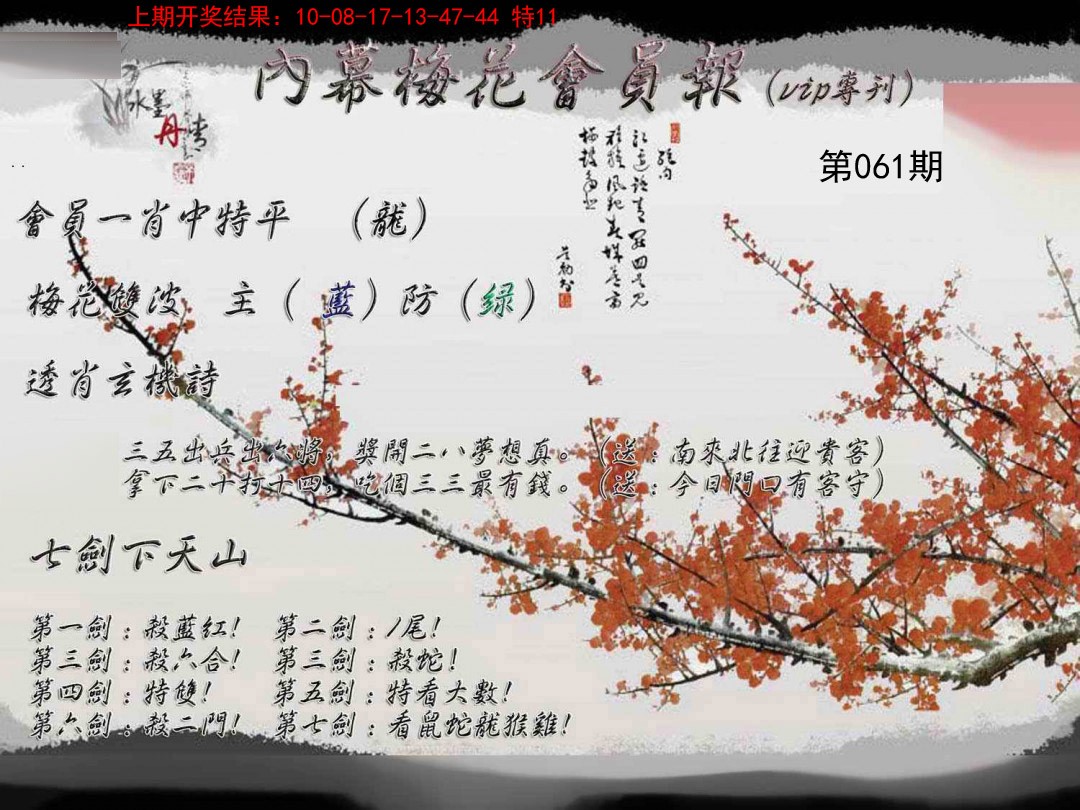 上期开奖结果：10-08-17-13-47-44 特11
內幕梅花會員報（vip專刊）
水墨
丹青
第061期
會員一肖中特平 （龍）
梅花雙波 主（藍）防（绿）
透肖玄機詩
三五出兵出六將，獎開二八夢想真。（送：南來北往迎貴客）
拿下二十打十四，吃個三三最有錢。（送：今日門口有客守）
七劍下天山
第一劍：殺藍红！ 第二劍：1尾！
第三劍：殺六合！ 第三劍：殺蛇！
第四劍：特雙！ 第五劍：特看大數！
第六劍：殺二門！ 第七劍：看鼠蛇龍猴雞！